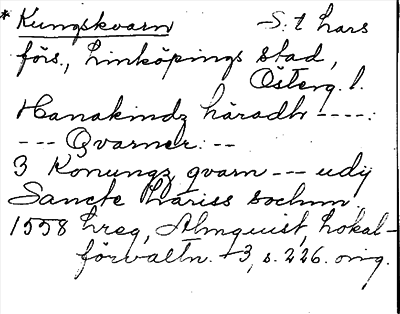 * Kungskvarn S:t Lars
förs., Linköpings stad,
Österg. l.
Hanakindz häradh ----:
--- Qvarner: --
3 Konungz qvarn --- udij
Sancte Lariss sochnn.
1558 hreg, Almquist, Lokal-
förvaltn. 3, s. 226. orig.